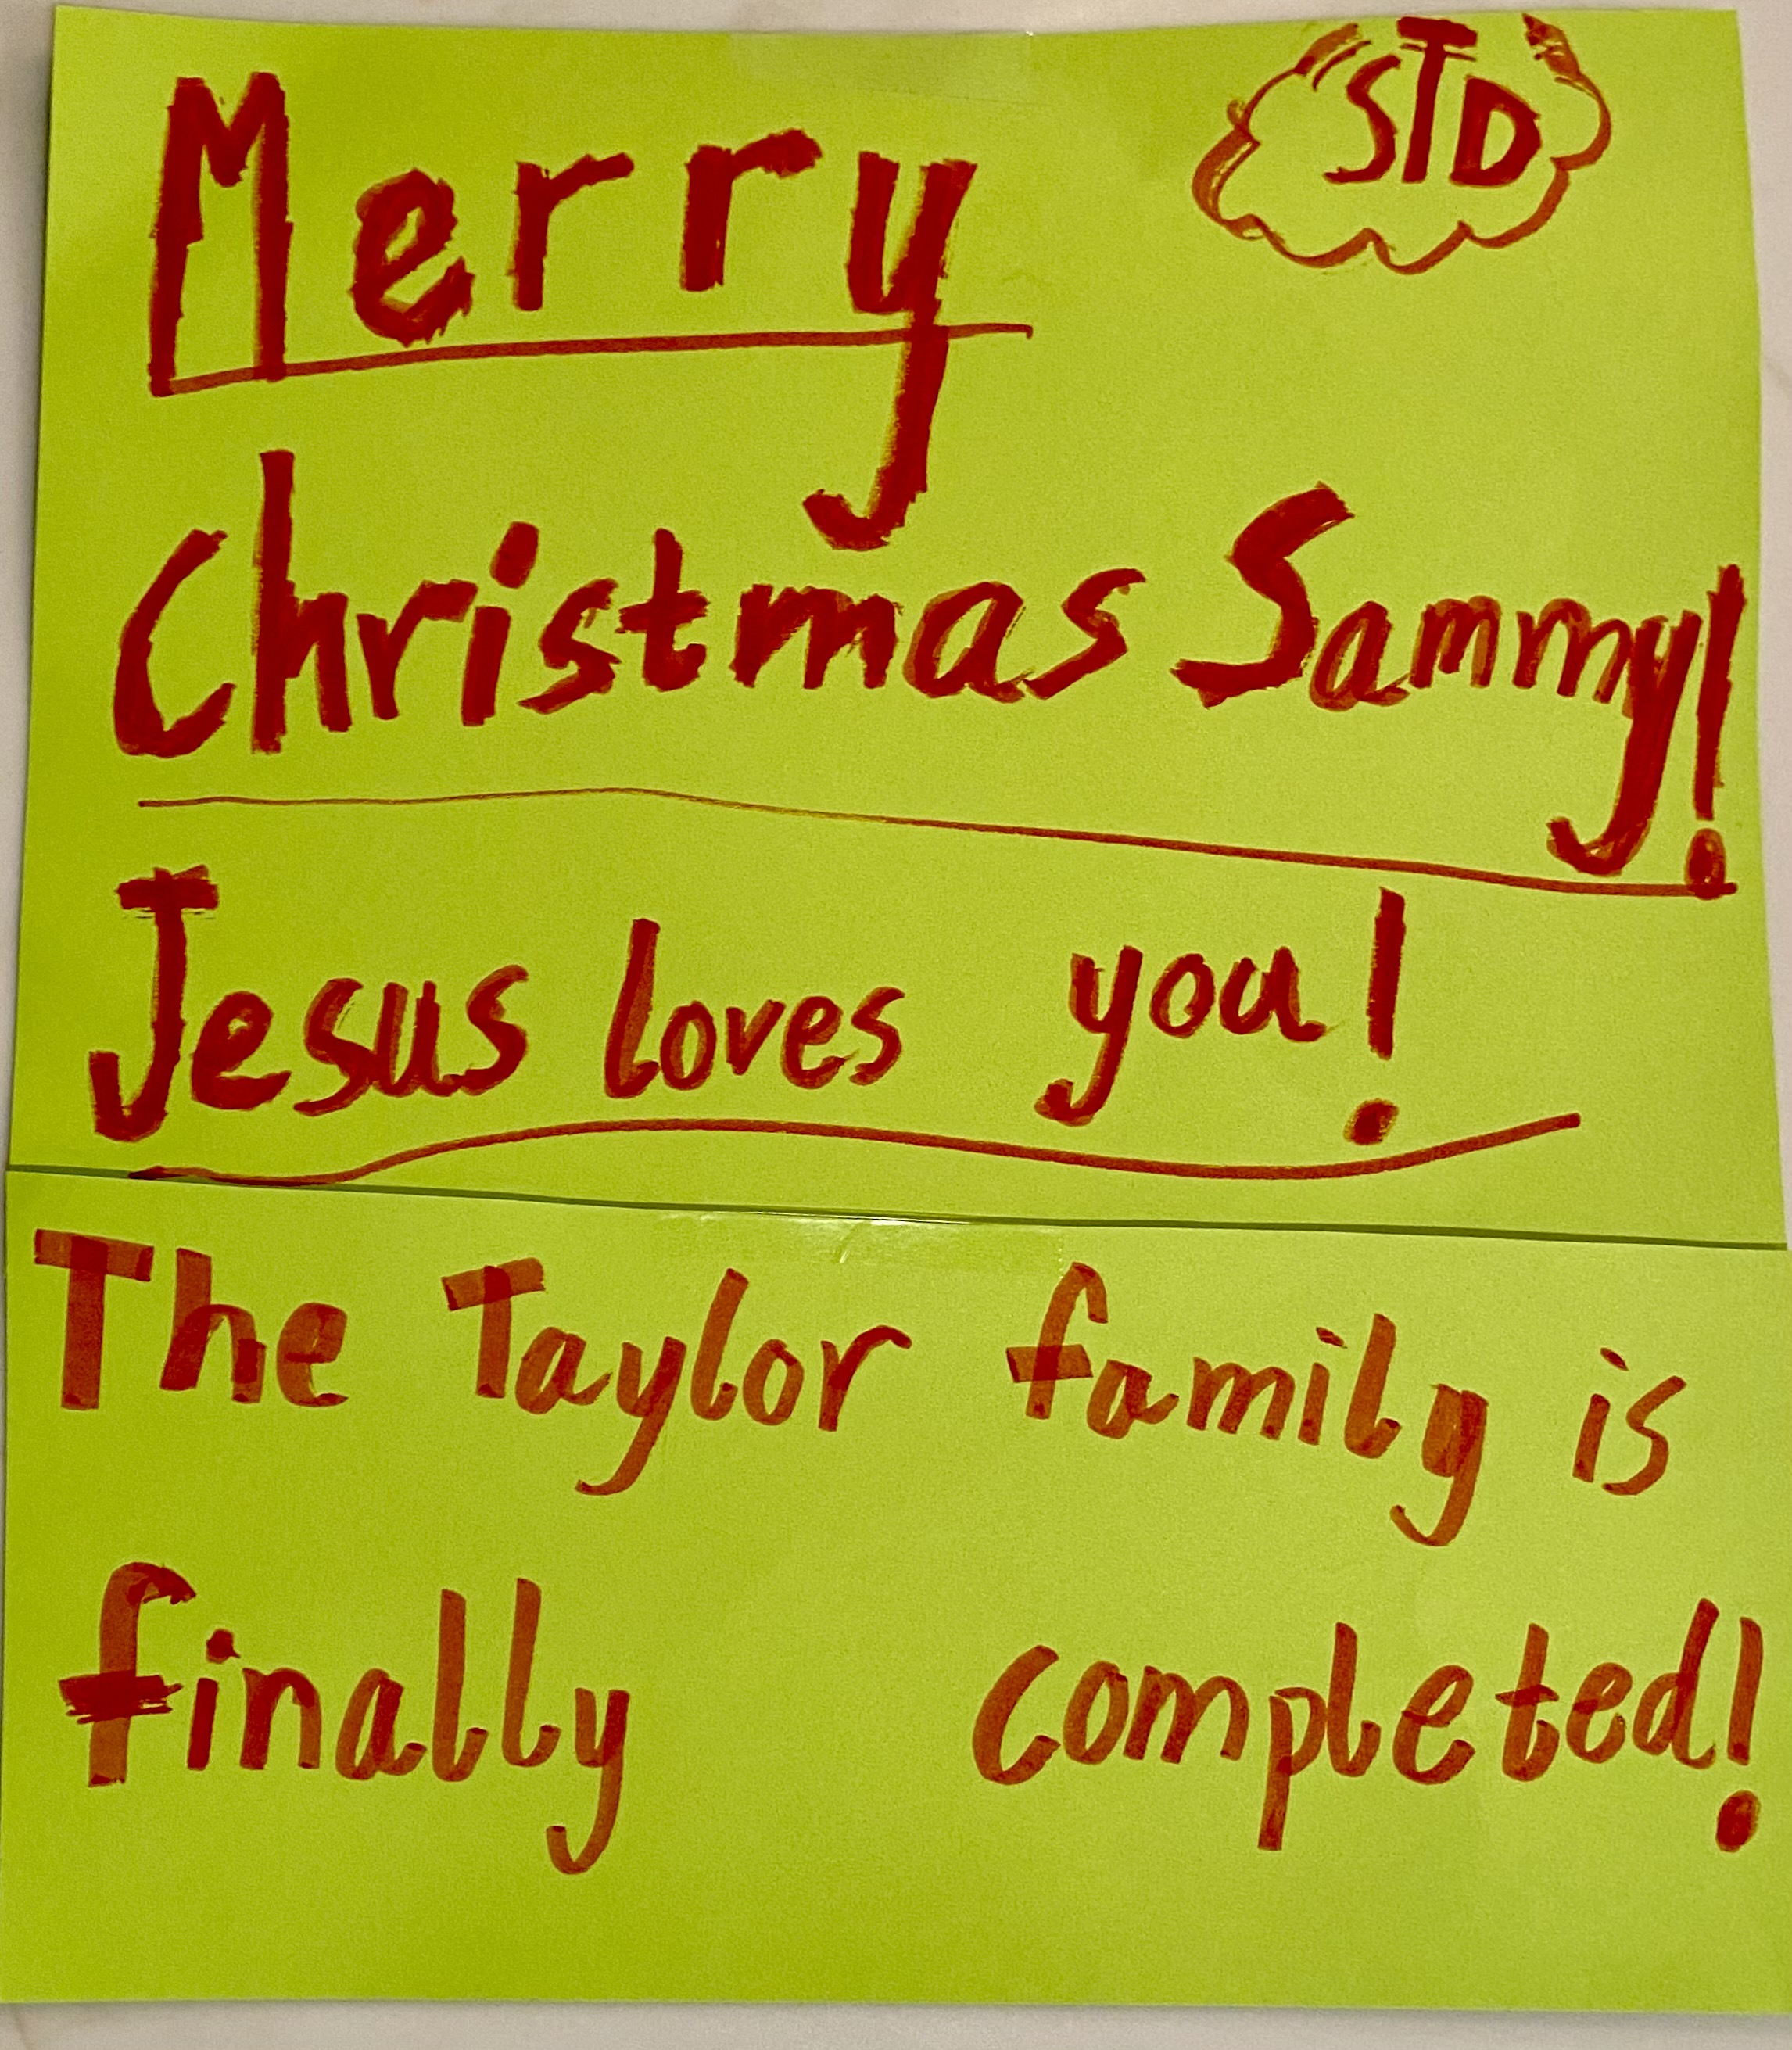 STD
Merry
Christmas Sammy!
Jesus loves you!
The Taylor family is
finally completed!